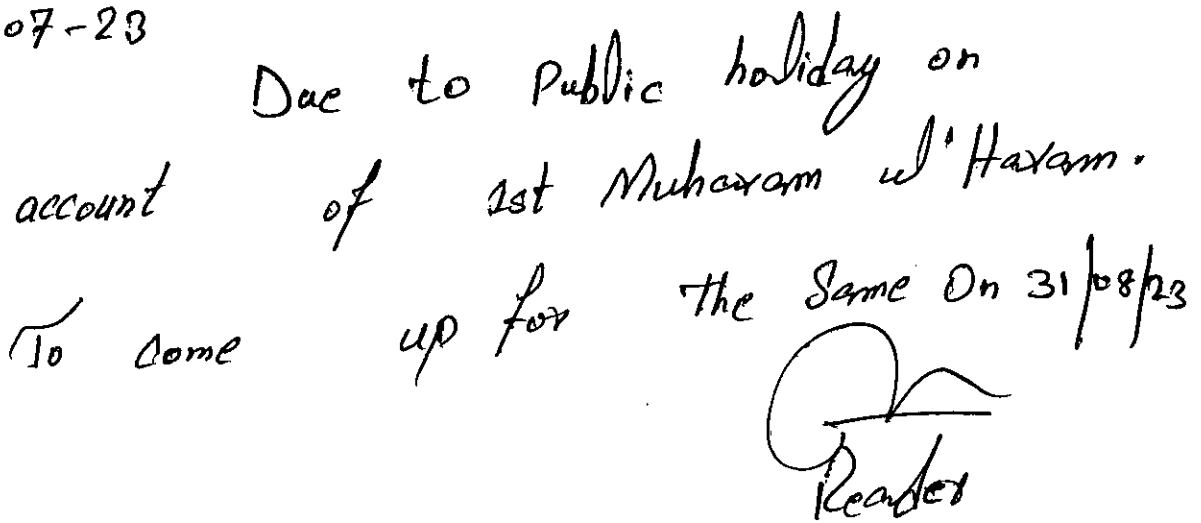 07-23
Due to Public holiday on
account of 1st Muharam ul'Haram.
To come up for the Same On 31/08/23
Reader